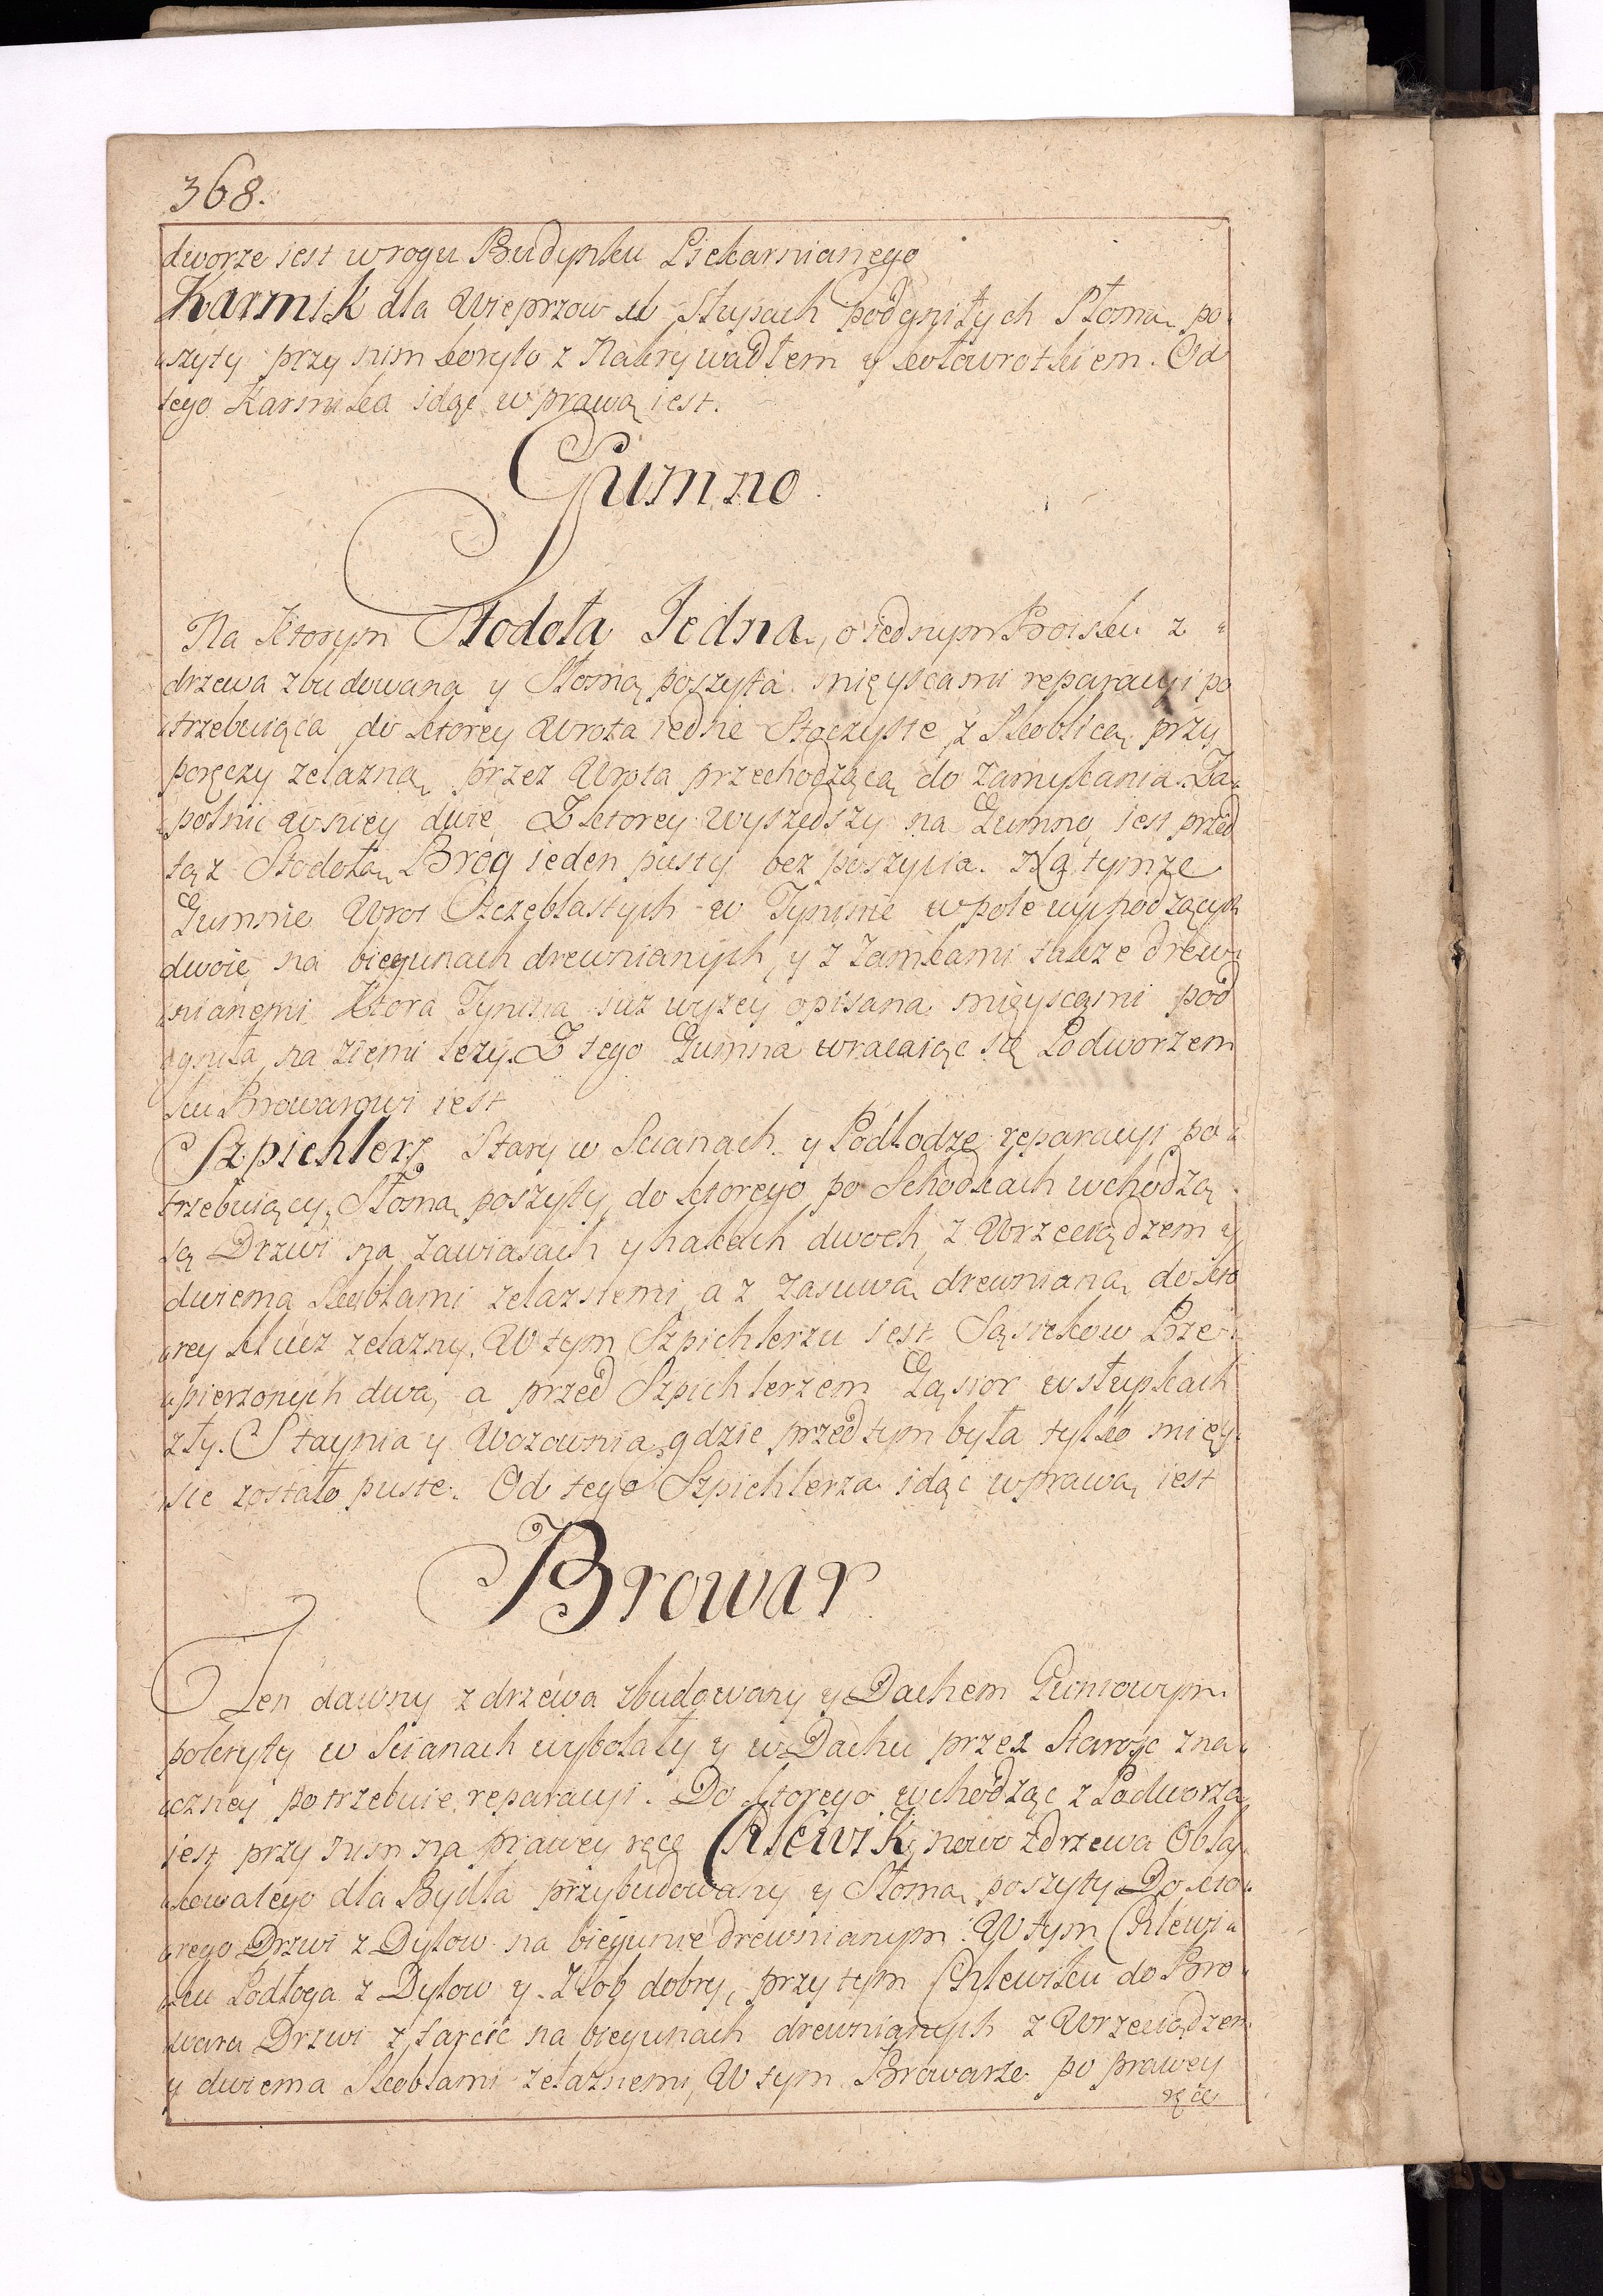 368.
dworze iest w rogu Budynku Piekarnianego
Karmik dla Wieprzow w Słupach podgniłych Słomą po„
„szyty przy nim koryto z Nakrywadłem y kołowrotkiem. Od
tego Karmika idąc w prawą iest.
Gumno.
Na ktorym Stodoła Iedna, o iednym Boisku z „
drzewa zbudowana y Słomą poszyta mięyscami reparacyi po
„trzebuiąca do ktorey Wrota iedne Stoczyste z Skoblicą przy
poręczy zelazną przez Wrota przechodzącą do zamykania. Za„
„polnic w niey dwie, Z ktorey wyszedszy na Gumno, iest przed
tąż Stodołą Brog ieden pusty bez poszycia. Na tymże
Gumnie Wrot Szczeblastych w Tyninie w pole wychodzących
dwoie na biegunach drewnianych y z Zamkami także drew„
„nianemi Ktora Tynina iuż wyżey opisana mięyscami pod
„gniła na ziemi leży. Z tego Gumna wracaiąc się Podworzem
ku Browarowi iest
Szpichlerz Stary w Scianach y Podłodze reparacyi po„
trzebuiący, Słomą poszyty, do ktorego po Schodkach wchodzą
są Drzwi na zawiasach y hakach dwoch, z Wrzeciądzem y
dwiema Skoblami zelaznemi, a z Zasuwą drewnianą do kto
„rey klucz zelazny. W tym Szpichlerzu iest Sąsiekow Prze„
„pierzonych dwa, a przed Szpichlerzem Gąsior w słupkach
zły. Staynia y Wozownia gdzie przedtym była tylko mięy„
sce zostało puste. Od tego Szpichlerza idąc w prawą iest
Browar
Ten dawny z drzewa zbudowany y Dachem Guntowym
pokryty w Scianach wybolały y w Dachu przez Starość zna„
„czney potrzebuie reparacyi. Do ktorego wchodząc z Podworza
iest przy nim na prawey ręce Chlewik nowo z drzewa Obla„
„kowatego dla Bydła przybudowany y Słomą poszyty. Do kto„
„rego Drzwi z Dylow na biegunie drewnianym. W tym Chlewi„
„ku Podłoga z Dylow y Złob dobry, przy tym Chlewiku do Bro„
wara Drzwi z tarcic na biegunach drewnianych z Wrzeciądzem
y dwiema Skoblami zelaznemi, W tym Browarze po prawey
ręce